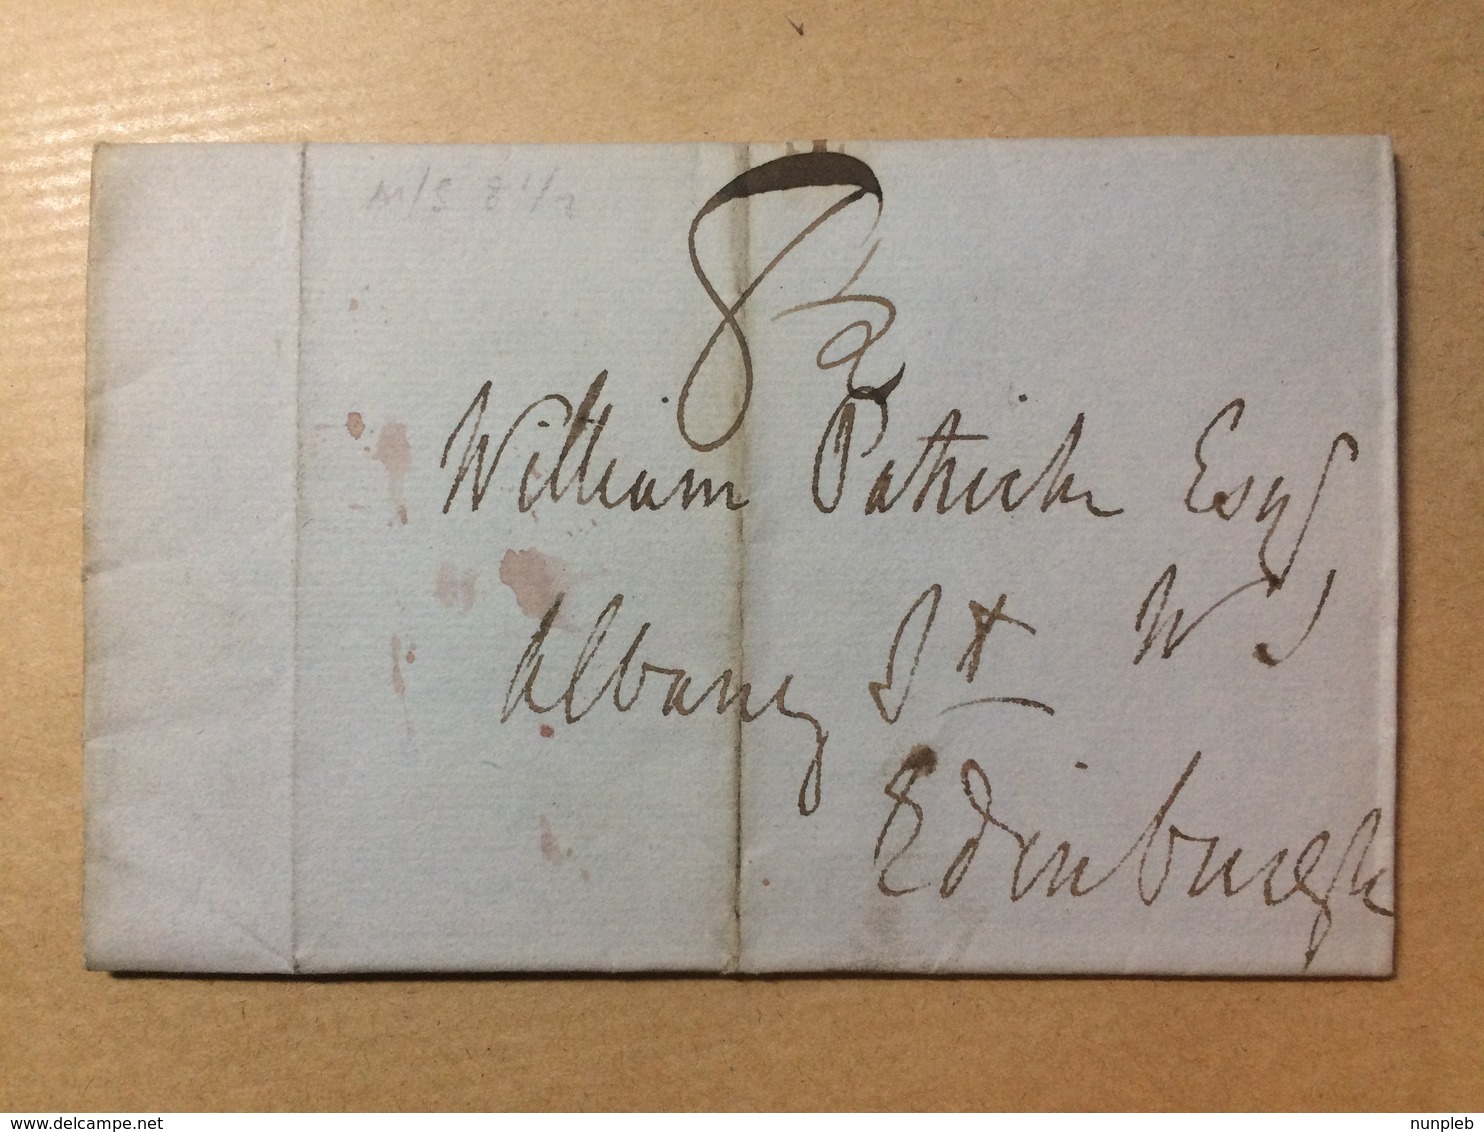 M/S 8 1/2
8 1/2
William Patrick Esq
W S
Albany St
Edinburgh
www.delcampe.net
nunpleb